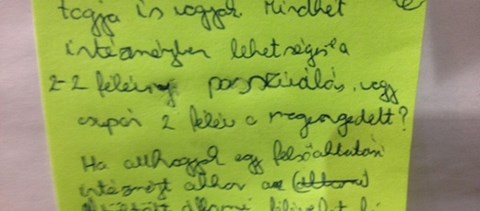 tagja is vagyok. Mindkét
intézményben lehetséges a
2-2 félévnyi passziválás, vagy
csupán 2 félév a megengedett?
Ha otthagyok egy felsőoktatási
intézményt akkor az (állami)